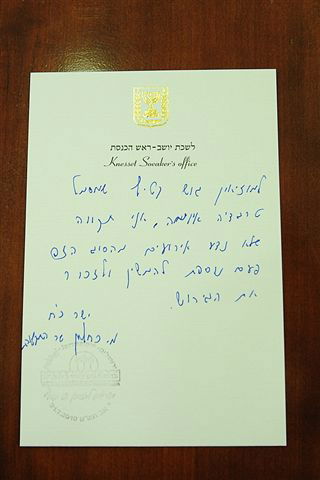 לשכת יושב-ראש הכנסת
Knesset Speaker's office
למוזיאון גוש קטיף שמסמל
טרגדיה איומה, אני תקווה
שלא נדע אירועים מהסוג הזה
פעם נוספת להמשין ולזכור
את הגירוש.
ישר כ"ח